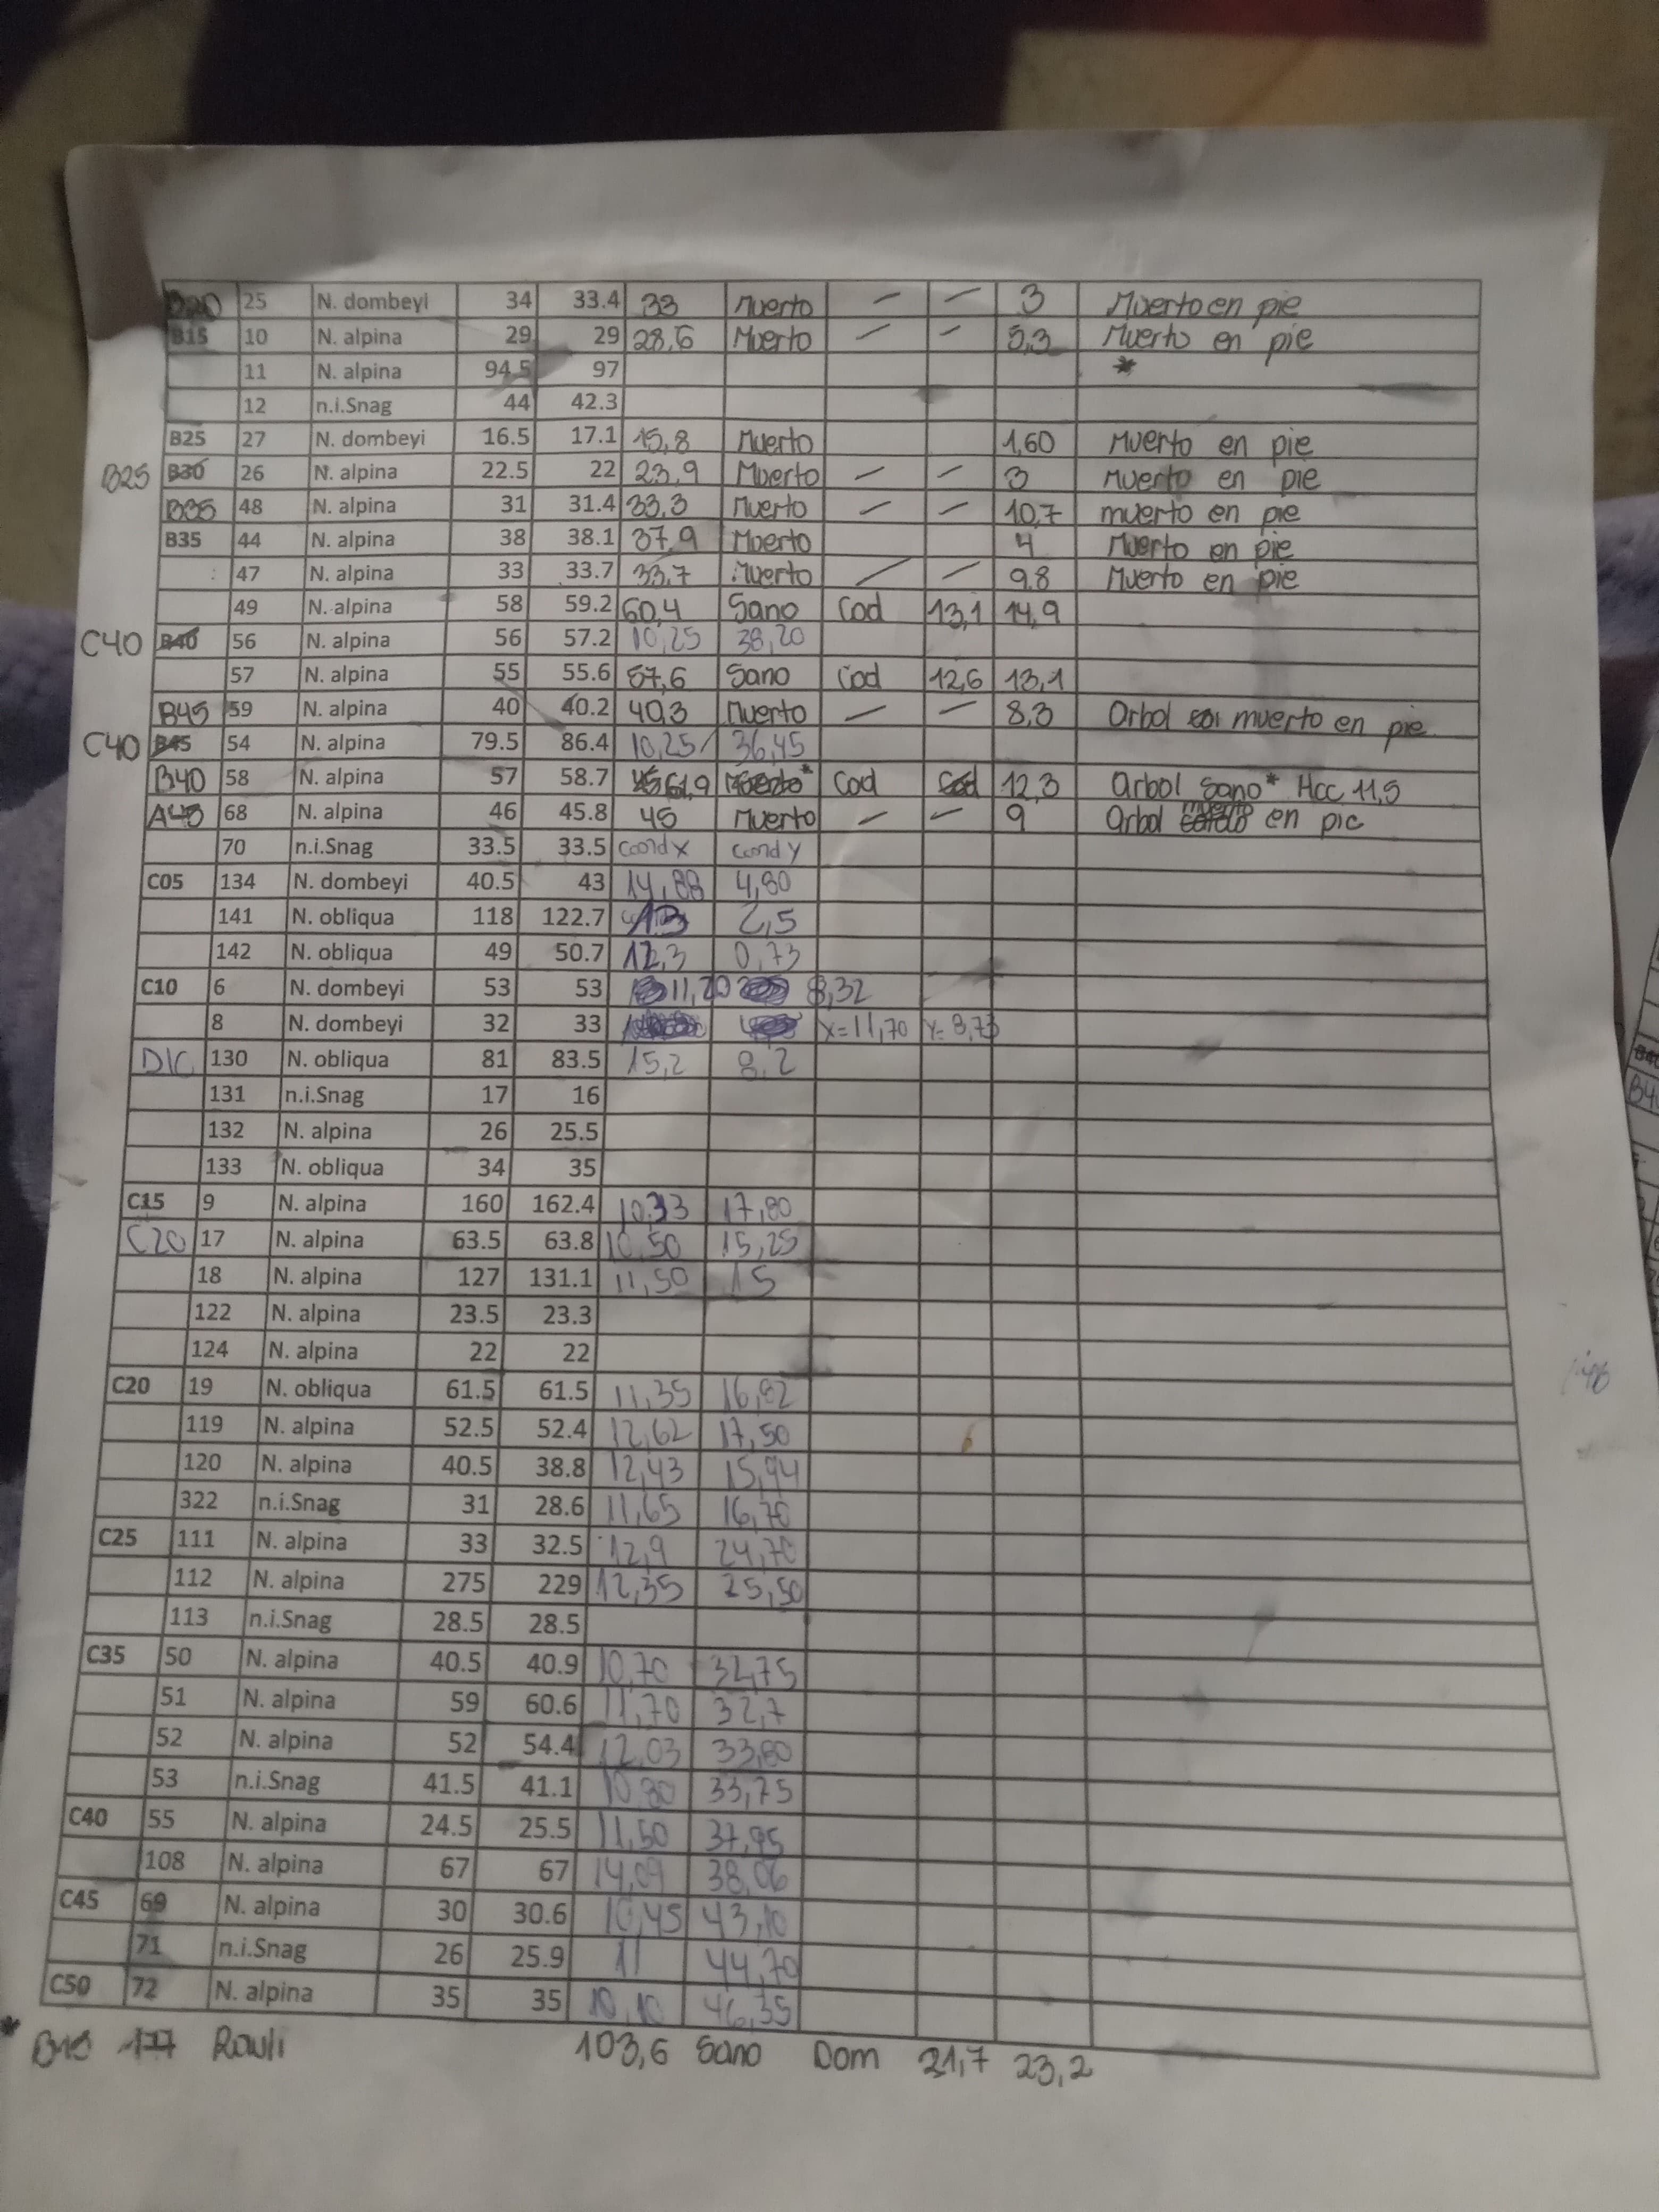 B20 25 N. dombeyi 34 33.4 33 Muerto — — 3 Muerto en pie
B15 10 N. alpina 29 29 28,6 Muerto — — 5,3 Muerto en pie
11 N. alpina 94.5 97 *
12 n.i.Snag 44 42.3
B25 27 N. dombeyi 16.5 17.1 15,8 Muerto 1,60 Muerto en pie
B25 B30 26 N. alpina 22.5 22 23,9 Muerto — — 3 Muerto en pie
B35 48 N. alpina 31 31.4 33,3 Muerto — — 10,7 muerto en pie
B35 44 N. alpina 38 38.1 37,9 Muerto 4 Muerto en pie
47 N. alpina 33 33.7 33,7 Muerto — — 9,8 Muerto en pie
49 N. alpina 58 59.2 60,4 Sano Cod 13,1 14,9
C40 B40 56 N. alpina 56 57.2 10,25 38,20
57 N. alpina 55 55.6 57,6 Sano Cod 12,6 13,1
B45 59 N. alpina 40 40.2 40,3 Muerto — — 8,3 Arbol muerto en pie
C40 B45 54 N. alpina 79.5 86.4 10,25/ 36,45
B40 58 N. alpina 57 58.7 61,9 Muerto* Cod Cod 12,3 Arbol Sano* Hcc 11,5
A45 68 N. alpina 46 45.8 45 Muerto — — 9 Arbol muerto en pie
70 n.i.Snag 33.5 33.5 coord X coord Y
C05 134 N. dombeyi 40.5 43 14,88 4,80
141 N. obliqua 118 122.7 13 2,5
142 N. obliqua 49 50.7 12,3 0,73
C10 6 N. dombeyi 53 53 11,20 8,32
8 N. dombeyi 32 33 X=11,70 Y=8,73
D10 130 N. obliqua 81 83.5 15,2 8,2
131 n.i.Snag 17 16
132 N. alpina 26 25.5
133 N. obliqua 34 35
C15 9 N. alpina 160 162.4 10,33 17,80
C20 17 N. alpina 63.5 63.8 10,50 15,25
18 N. alpina 127 131.1 11,50 15
122 N. alpina 23.5 23.3
124 N. alpina 22 22
C20 19 N. obliqua 61.5 61.5 11,35 16,82
119 N. alpina 52.5 52.4 12,62 17,50
120 N. alpina 40.5 38.8 12,43 15,94
322 n.i.Snag 31 28.6 11,65 16,70
C25 111 N. alpina 33 32.5 12,9 24,70
112 N. alpina 275 229 12,35 25,50
113 n.i.Snag 28.5 28.5
C35 50 N. alpina 40.5 40.9 10,70 32,75
51 N. alpina 59 60.6 11,70 32,7
52 N. alpina 52 54.4 12,03 33,80
53 n.i.Snag 41.5 41.1 10,80 33,75
C40 55 N. alpina 24.5 25.5 11,50 37,95
108 N. alpina 67 67 14,09 38,06
C45 69 N. alpina 30 30.6 10,45 43,10
71 n.i.Snag 26 25.9 11 44,70
C50 72 N. alpina 35 35 10,10 46,35
* B15 Rauli 103,6 Sano Dom 21,7 23,2